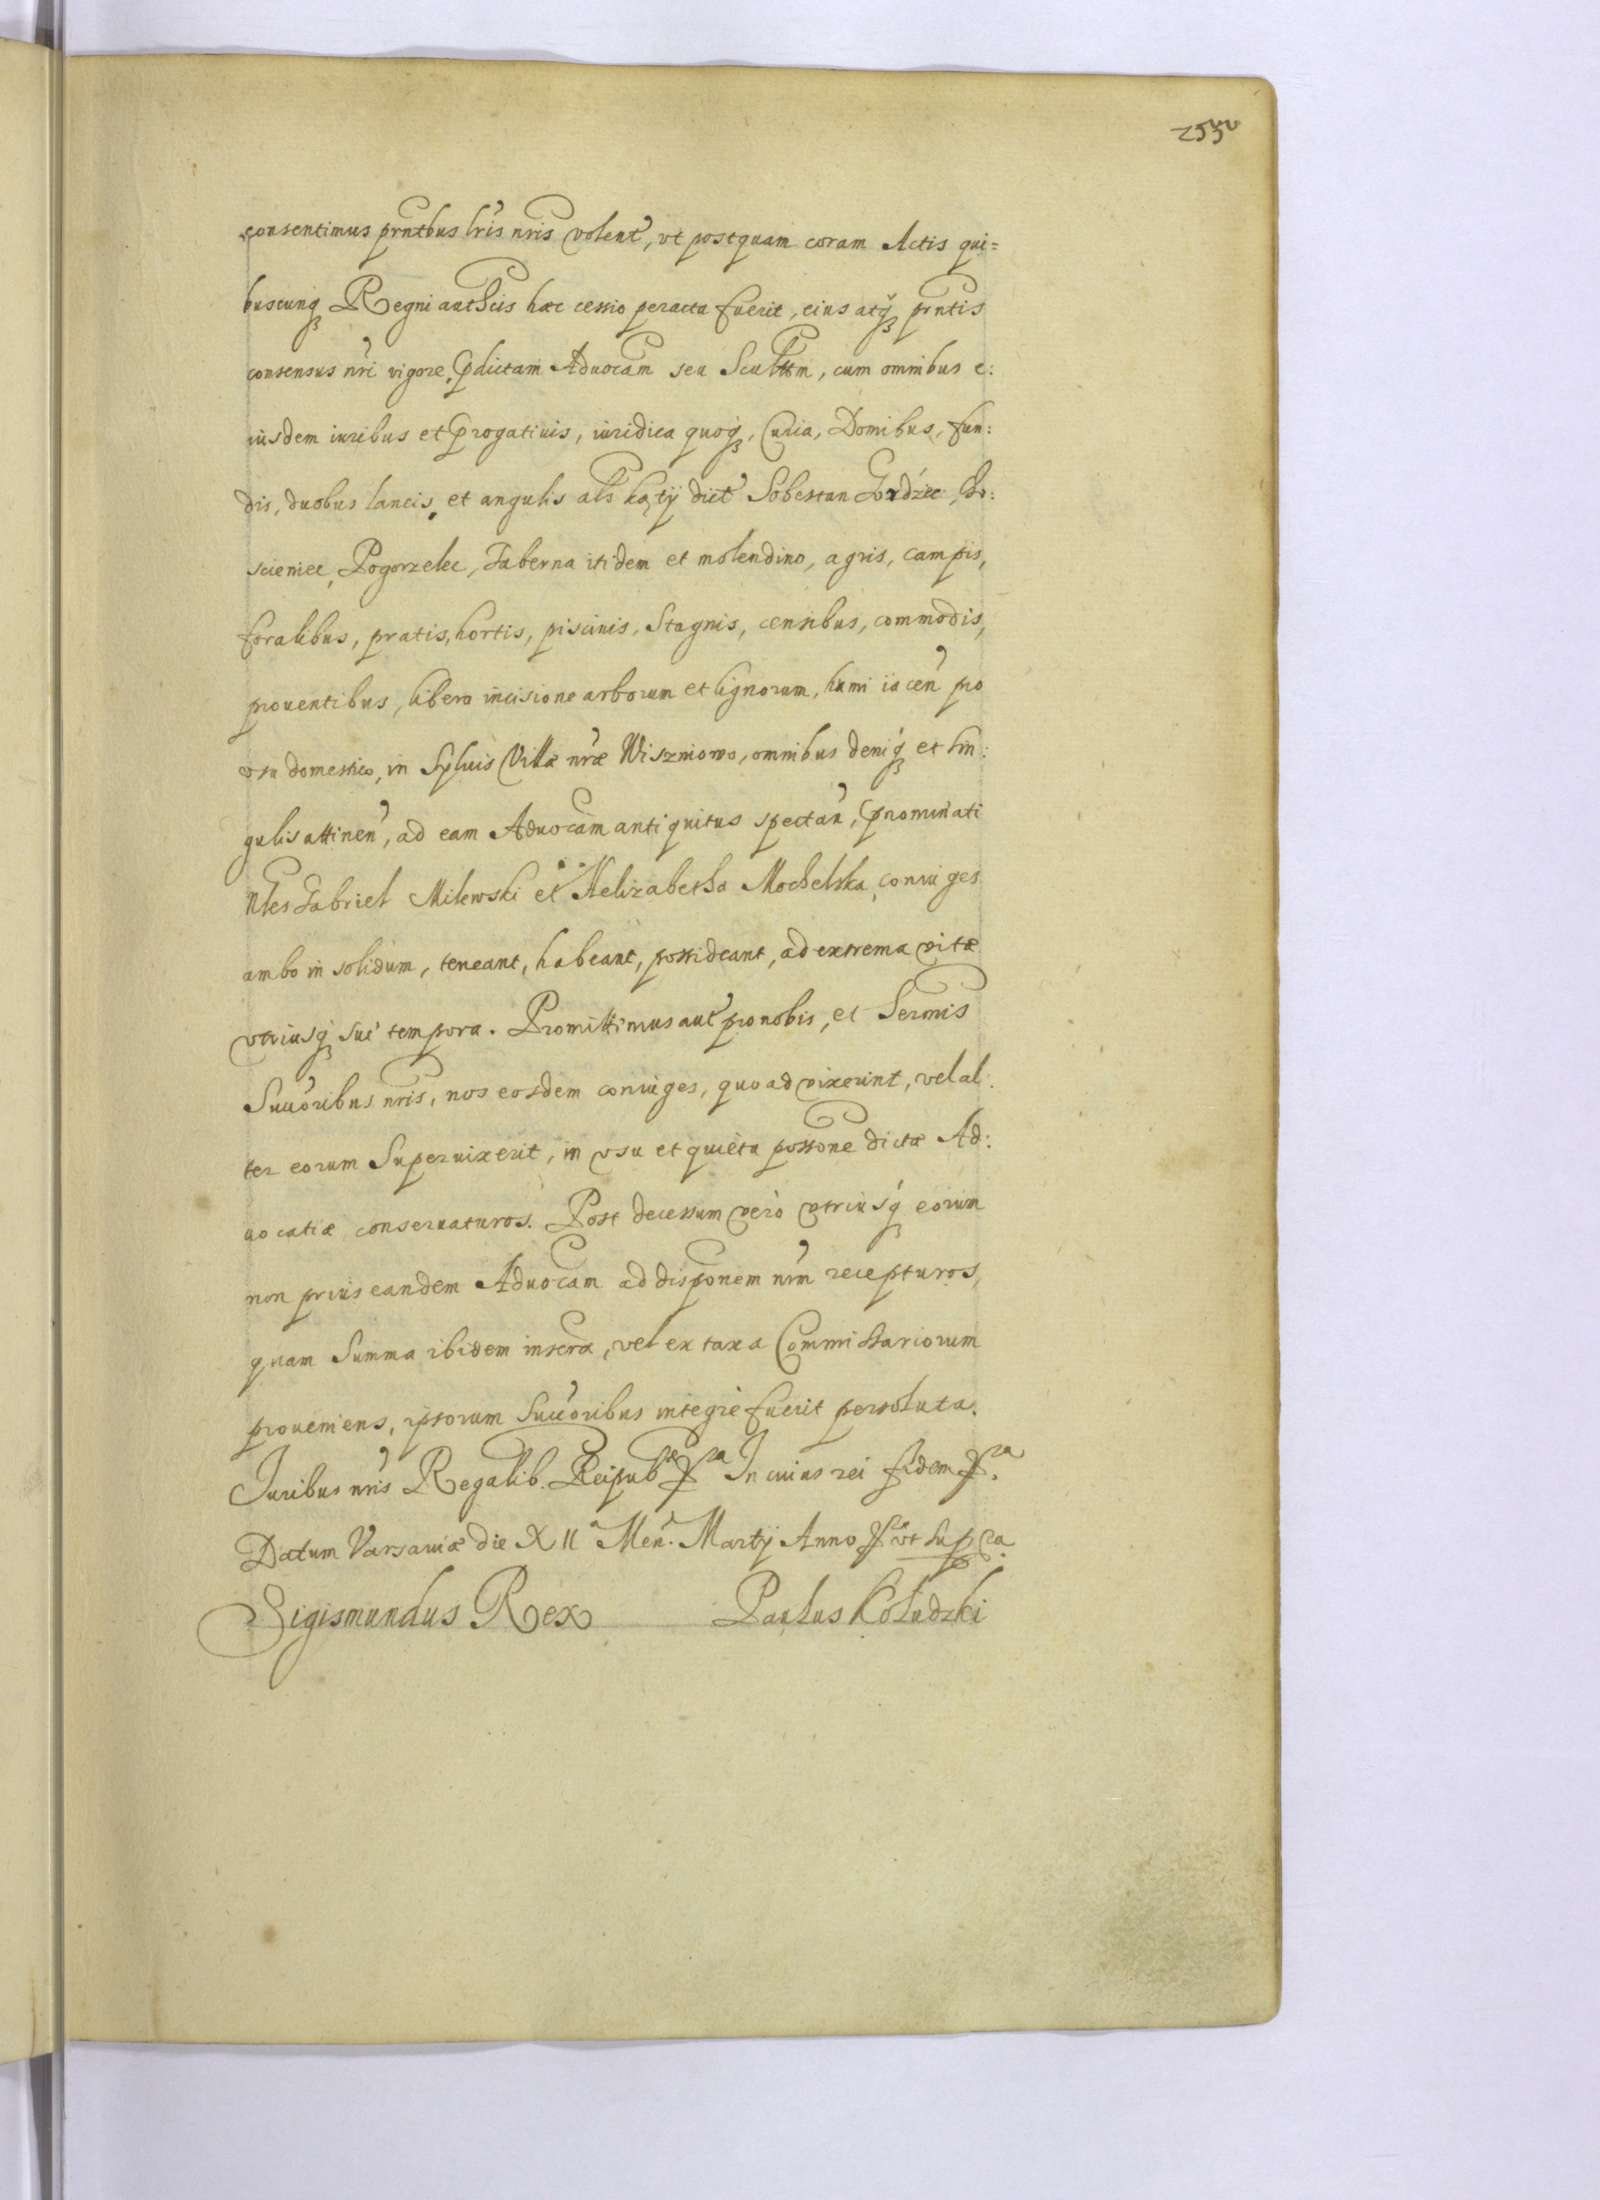 255
consentimus prntbus lris nris volent, vt postquam coram Actis qui=
buscunq Regni authcis hæc cessio peracta fuerit, eius atq prntis
consensus nri vigore, pdictam Aduocam seu Scultm, cum omnibus e:
iusdem iuribus et progatiuis, iuridica quoq, Curia, Domibus, fun:
dis, duobus laneis, et angulis als kąty dict Sobestan Gordziec,
scieniec, Pogorzelec, Taberna itidem et molendino, agris, campis,
foralibus, pratis, hortis, piscinis, Stagnis, censibus, commodis,
prouentibus, libera incisione arborum et lignorum, humi iacen pro
vsu domestico, in Syluis Villæ nræ Wiszniowo, omnibus deniq et sin:
gulis attinen, ad eam Aduocam antiquitus spectan, pnominati
Nbles Gabriel Milewski et Helizabetha Mochelska, coniuges
ambo in solidum, teneant, habeant, possideant, ad extrema vitæ
vtriusq sui tempora. Promittimus aut pro nobis, et Sermis
Succoribus nris, nos eosdem coniuges, quoad vixerint, vel al:
ter eorum Superuixerit, in vsu et quieta possone dictæ Ad:
uocatiæ conseruaturos. Post decessum verò vtriusq eorum
non prius eandem Aduocam ad disponem nrm recepturos,
quam Summa ibidem inscra, vel ex taxa Commissariorum
proueniens, ipsorum Succoribus integrè fuerit persoluta.
Juribus nris Regalib. Reipub In cuius rei fidem
Datum Varsauiæ die XII Men. Martij Anno vt supra
Sigismundus Rex Paulus Kołudzki